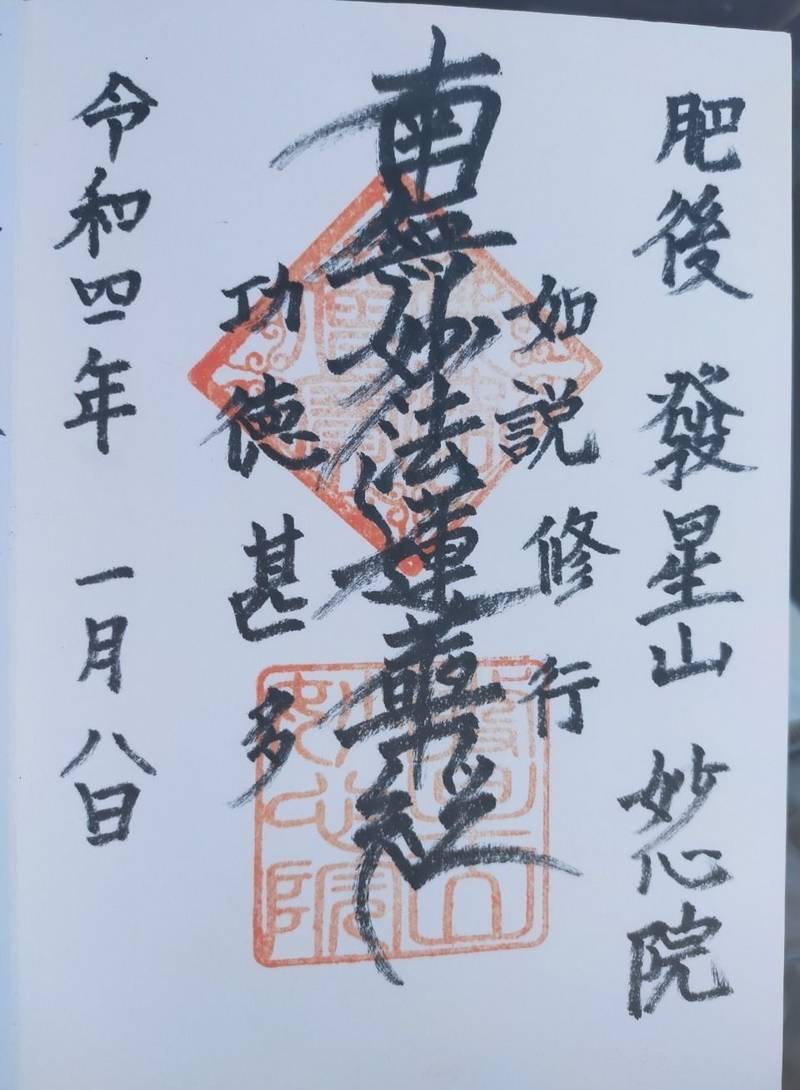 肥後 發星山 妙心院
如説修行
南無妙法蓮華経
功徳甚多
令和四年 一月八日
發星山
妙心院